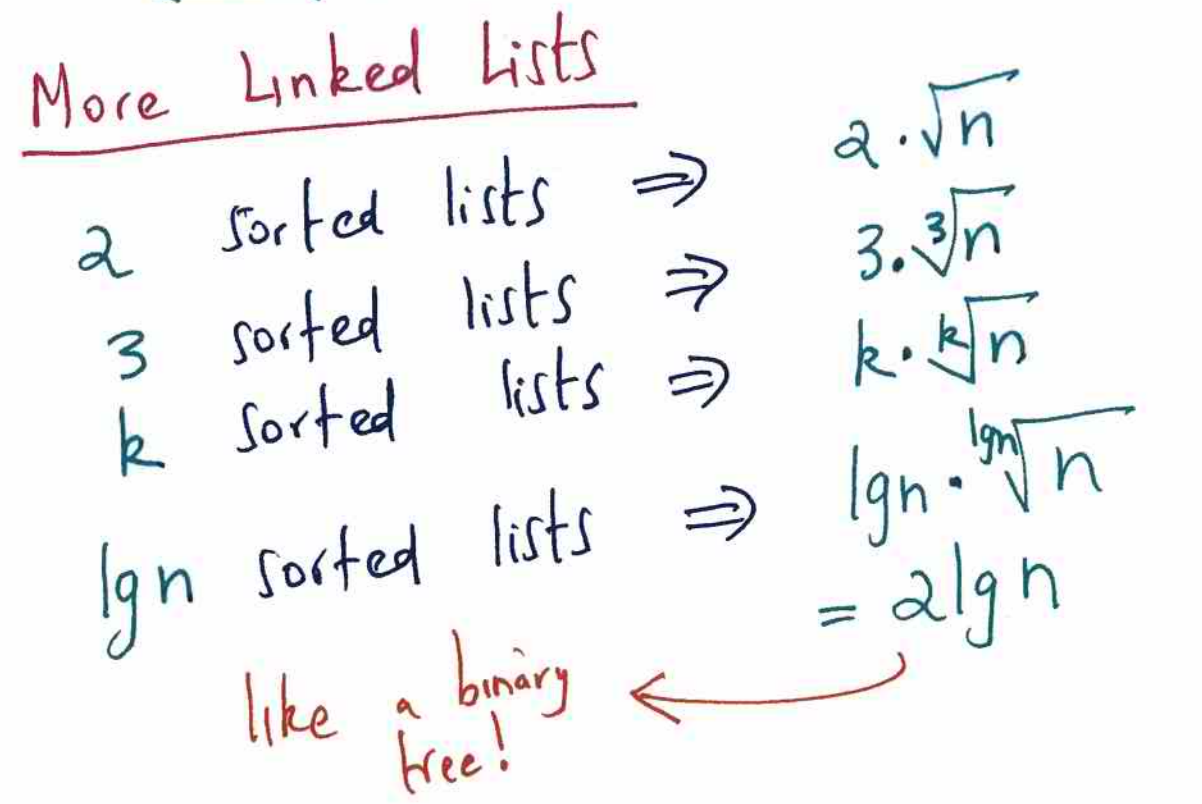 More Linked Lists
2 sorted lists ⇒ 2·√n
3 sorted lists ⇒ 3·∛n
k sorted lists ⇒ k·ᵏ√n
lgn sorted lists ⇒ lgn·ˡᵍⁿ√n
= 2lgn
like a binary
tree!